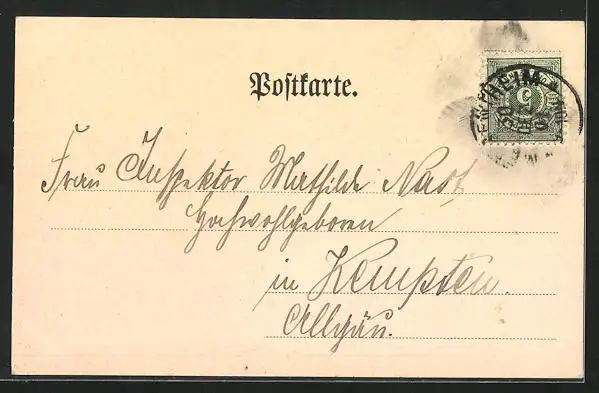 Postkarte.
HEIM
Frau Inspektor Mathilde Nast
Hochwohlgeboren
in Kempten.
Allgäu.